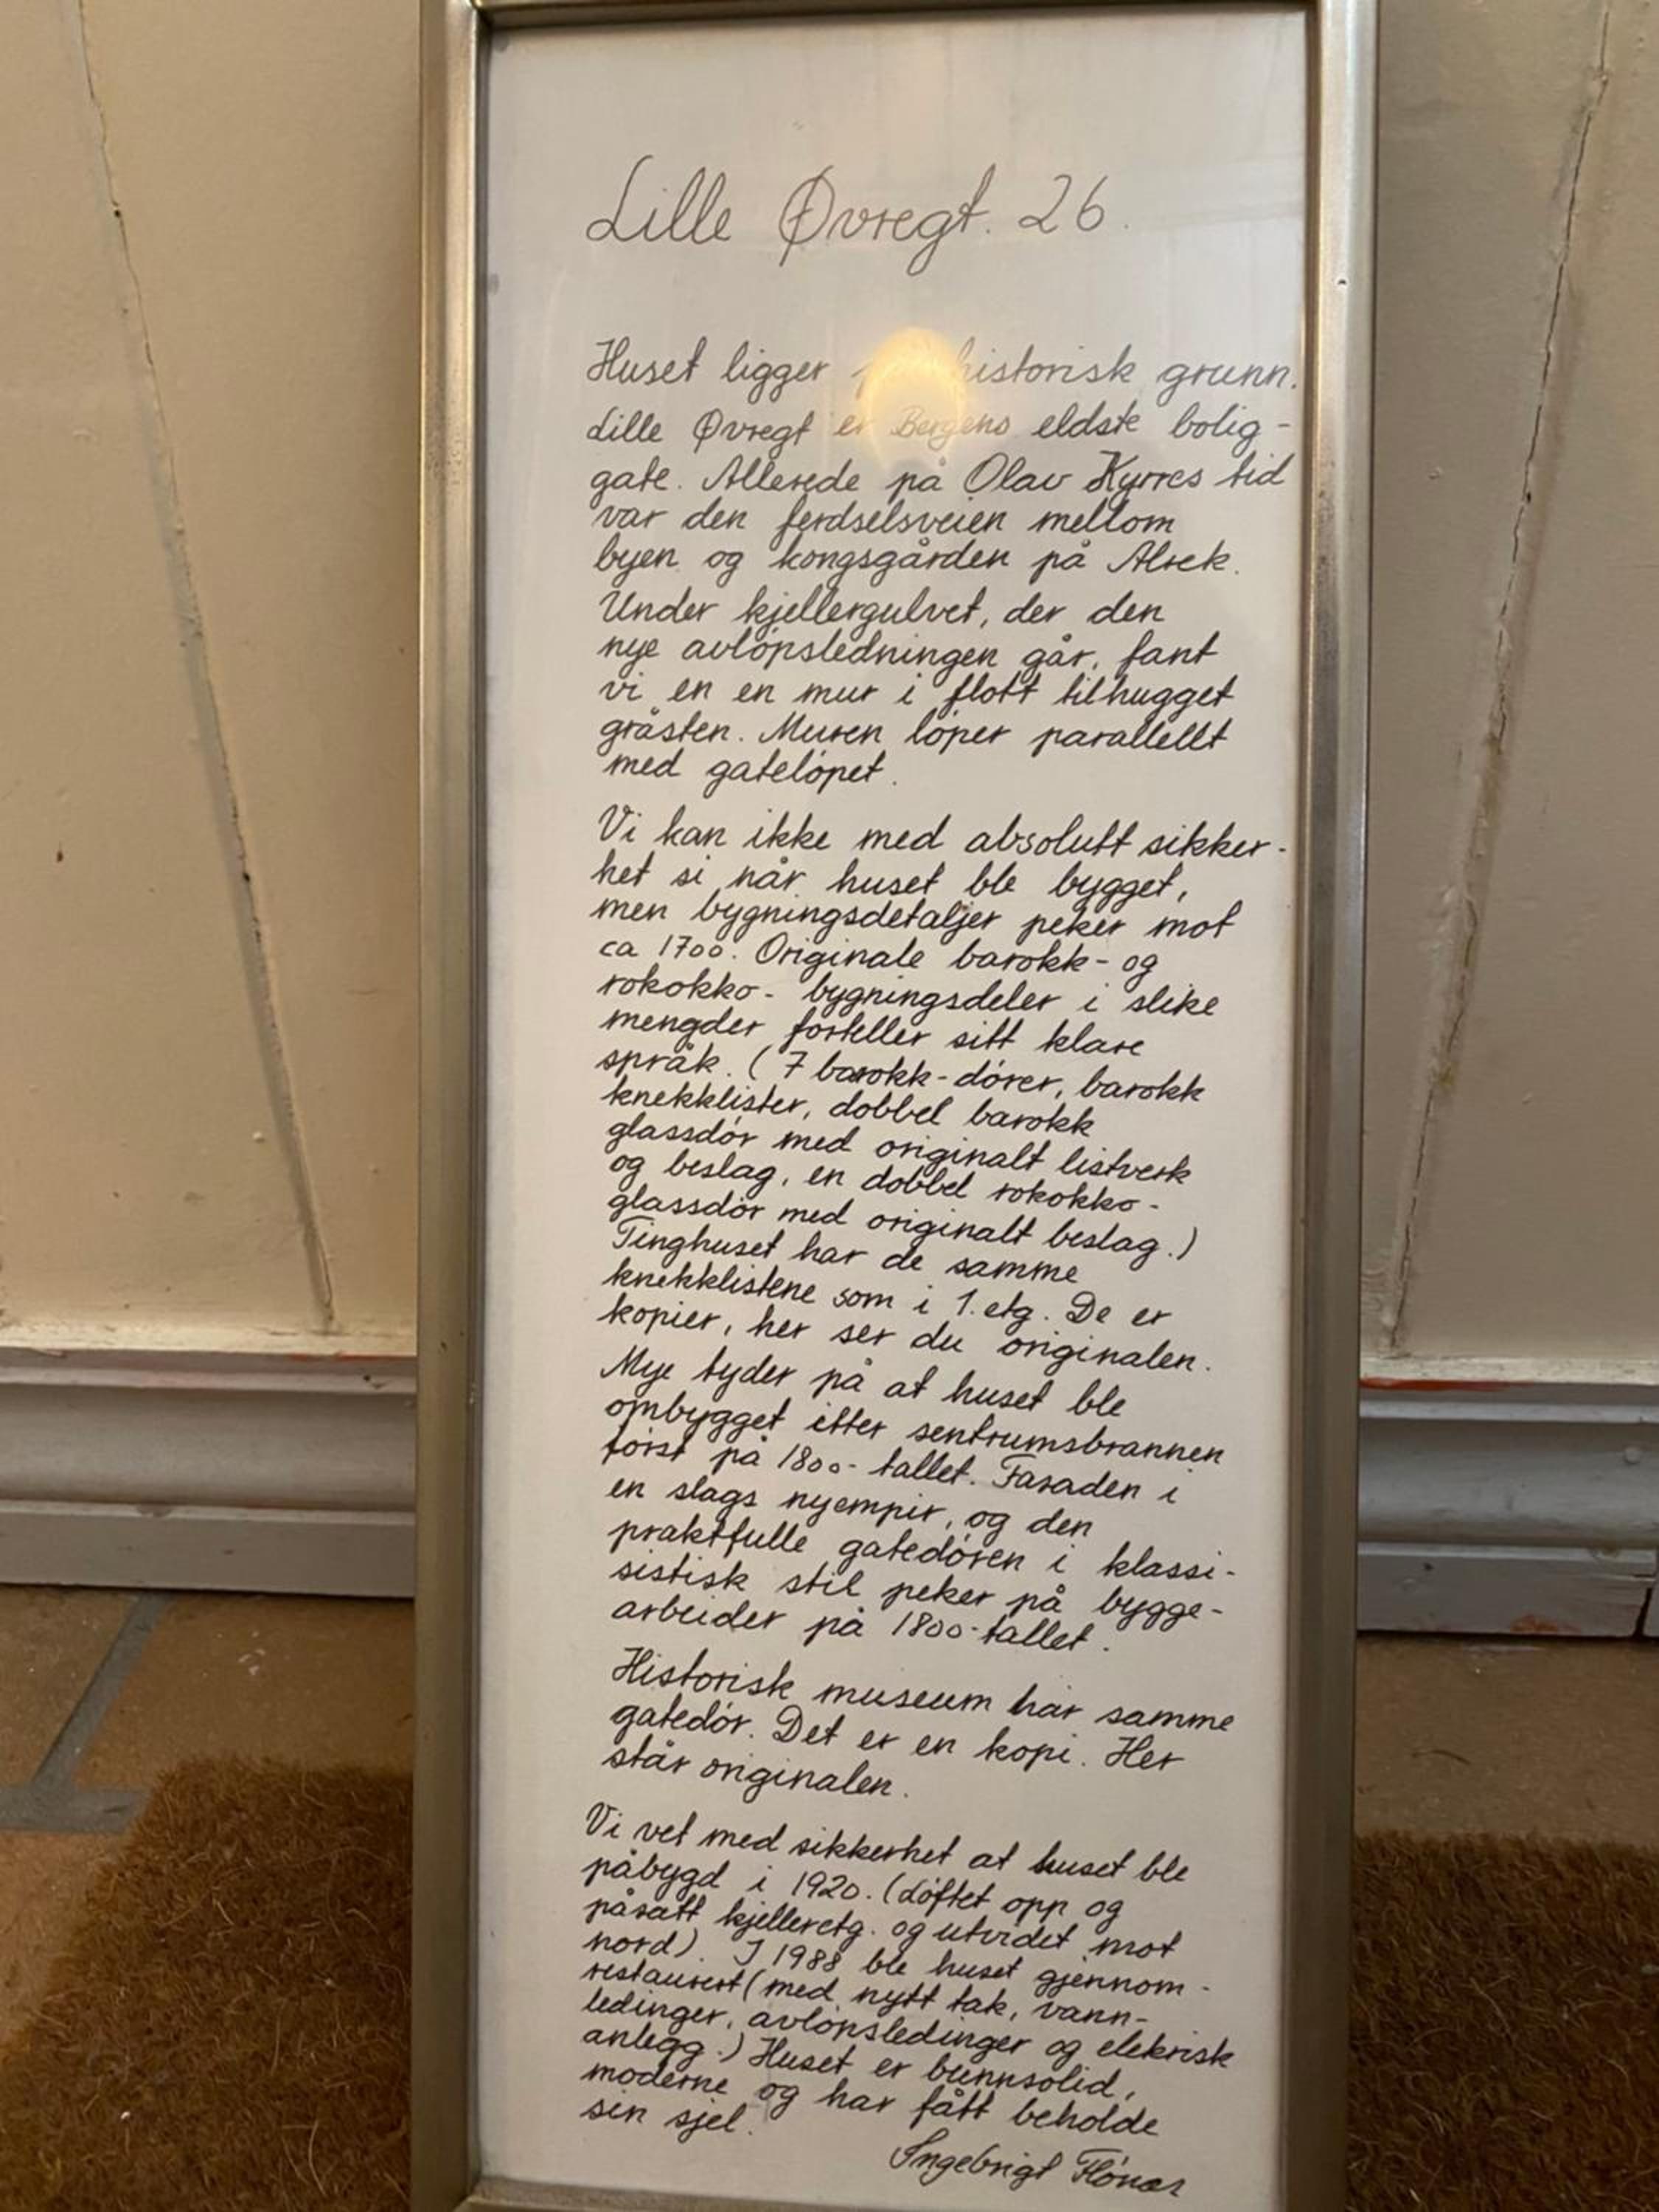 Lille Øvregt. 26.
Huset ligger historisk grunn.
Lille Øvregt er Bergens eldste bolig-
gate. Allerede på Olav Kyrres tid
var den ferdselsveien mellom
byen og kongsgården på Alrek.
Under kjellergulvet, der den
nye avløpsledningen går, fant
vi en en mur i flott tilhugget
gråsten. Muren løper parallellt
med gateløpet.
Vi kan ikke med absolutt sikker-
het si når huset ble bygget,
men bygningsdetaljer peker mot
ca 1700. Originale barokk- og
rokokko- bygningsdeler i slike
mengder forteller sitt klare
språk. (7 barokk-dører, barokk
knekklister, dobbel barokk
glassdør med originalt listverk
og beslag, en dobbel rokokko-
glassdør med originalt beslag.)
Tinghuset har de samme
knekklistene som i 1. etg. De er
kopier, her ser du originalen.
Mye tyder på at huset ble
ombygget etter sentrumsbrannen
først på 1800-tallet. Fasaden i
en slags nyempir, og den
praktfulle gatedøren i klassi-
sistisk stil peker på bygge-
arbeider på 1800-tallet.
Historisk museum har samme
gatedør. Det er en kopi. Her
står originalen.
Vi vet med sikkerhet at huset ble
påbygd i 1920. (Løftet opp og
påsatt kjelleretg. og utvidet mot
nord). I 1988 ble huset gjennom-
restaurert (med nytt tak, vann-
ledinger, avløpsledinger og elekrisk
anlegg.) Huset er bunnsolid,
moderne og har fått beholde
sin sjel.
Ingebrigt